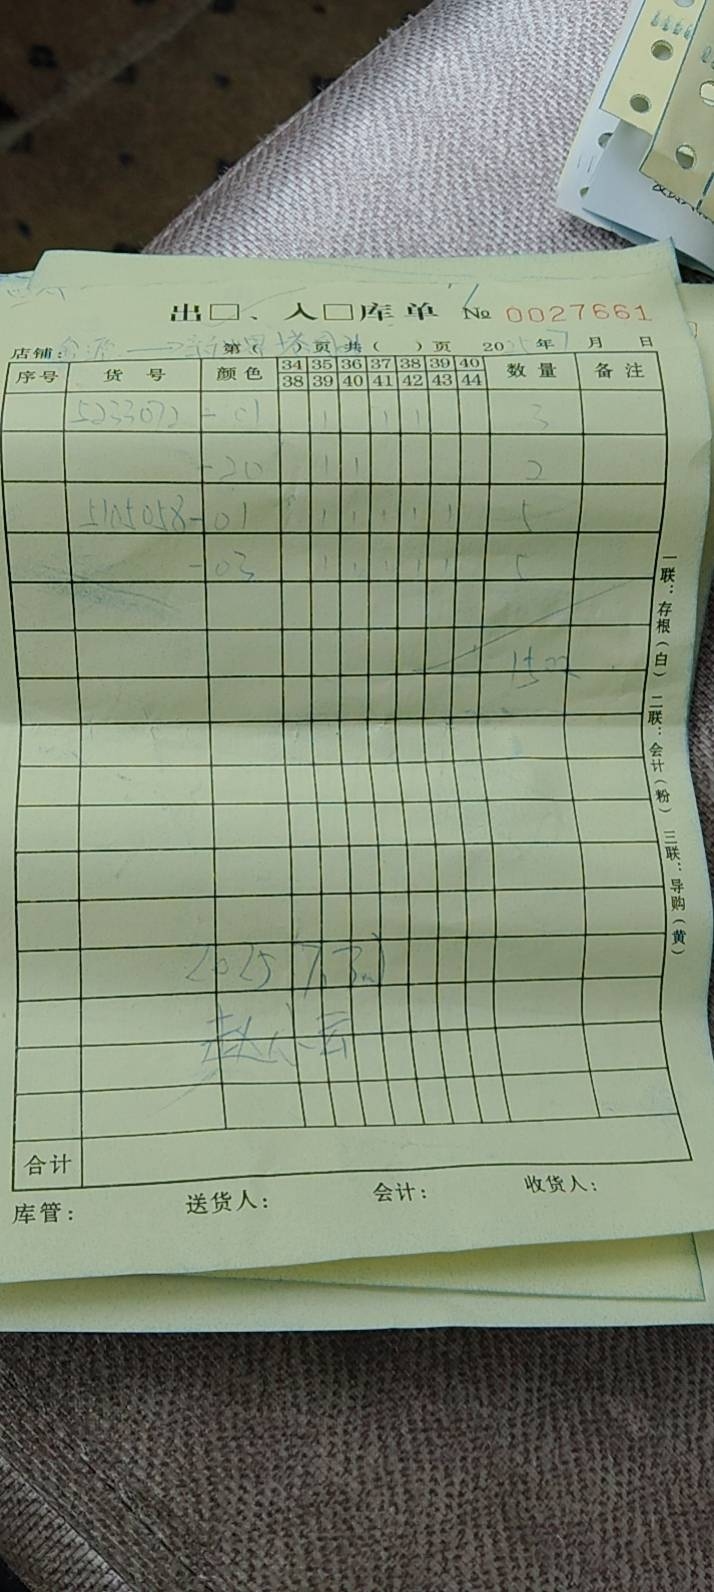 出□、入□库单 № 0027661
店铺: 第( )页 共( )页 2025年7月 日
序号 货号 颜色 34 35 36 37 38 39 40 数量 备注
38 39 40 41 42 43 44
5233072 -01 1 1 1 3
-20 1 1 2
5105058 -01 1 1 1 1 1 5
-03 1 1 1 1 1 5
2025
赵小云
合计
库管: 送货人: 会计: 收货人:
一联:存根(白) 二联:会计(粉) 三联:导购(黄)